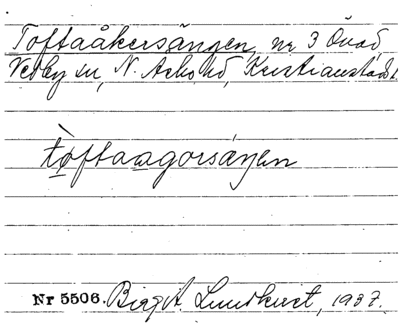 Toftaåkersängen, nr 3 Övad
Vedby sn, N. Åsbo hd, Kristianstads l.
tòftaagorsáŋen
Nr 5506. Birgit Lundkvist, 1937.